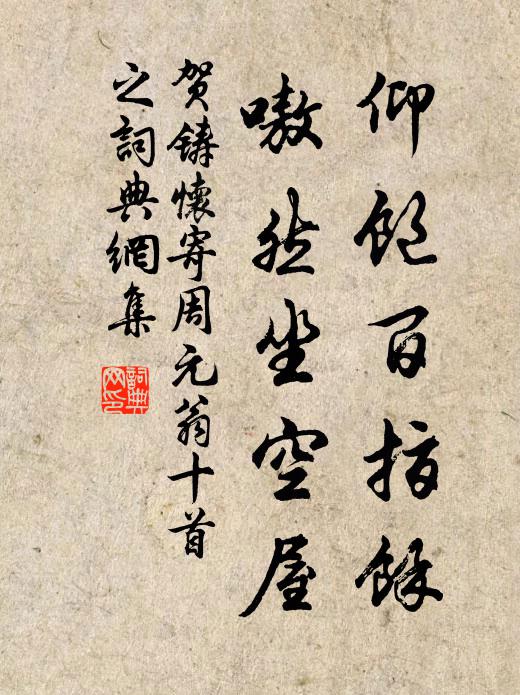 仰飽百指餘
嗷然坐空屋
贺鑄懷寄周元翁十首
之詞典網集
詞典網印